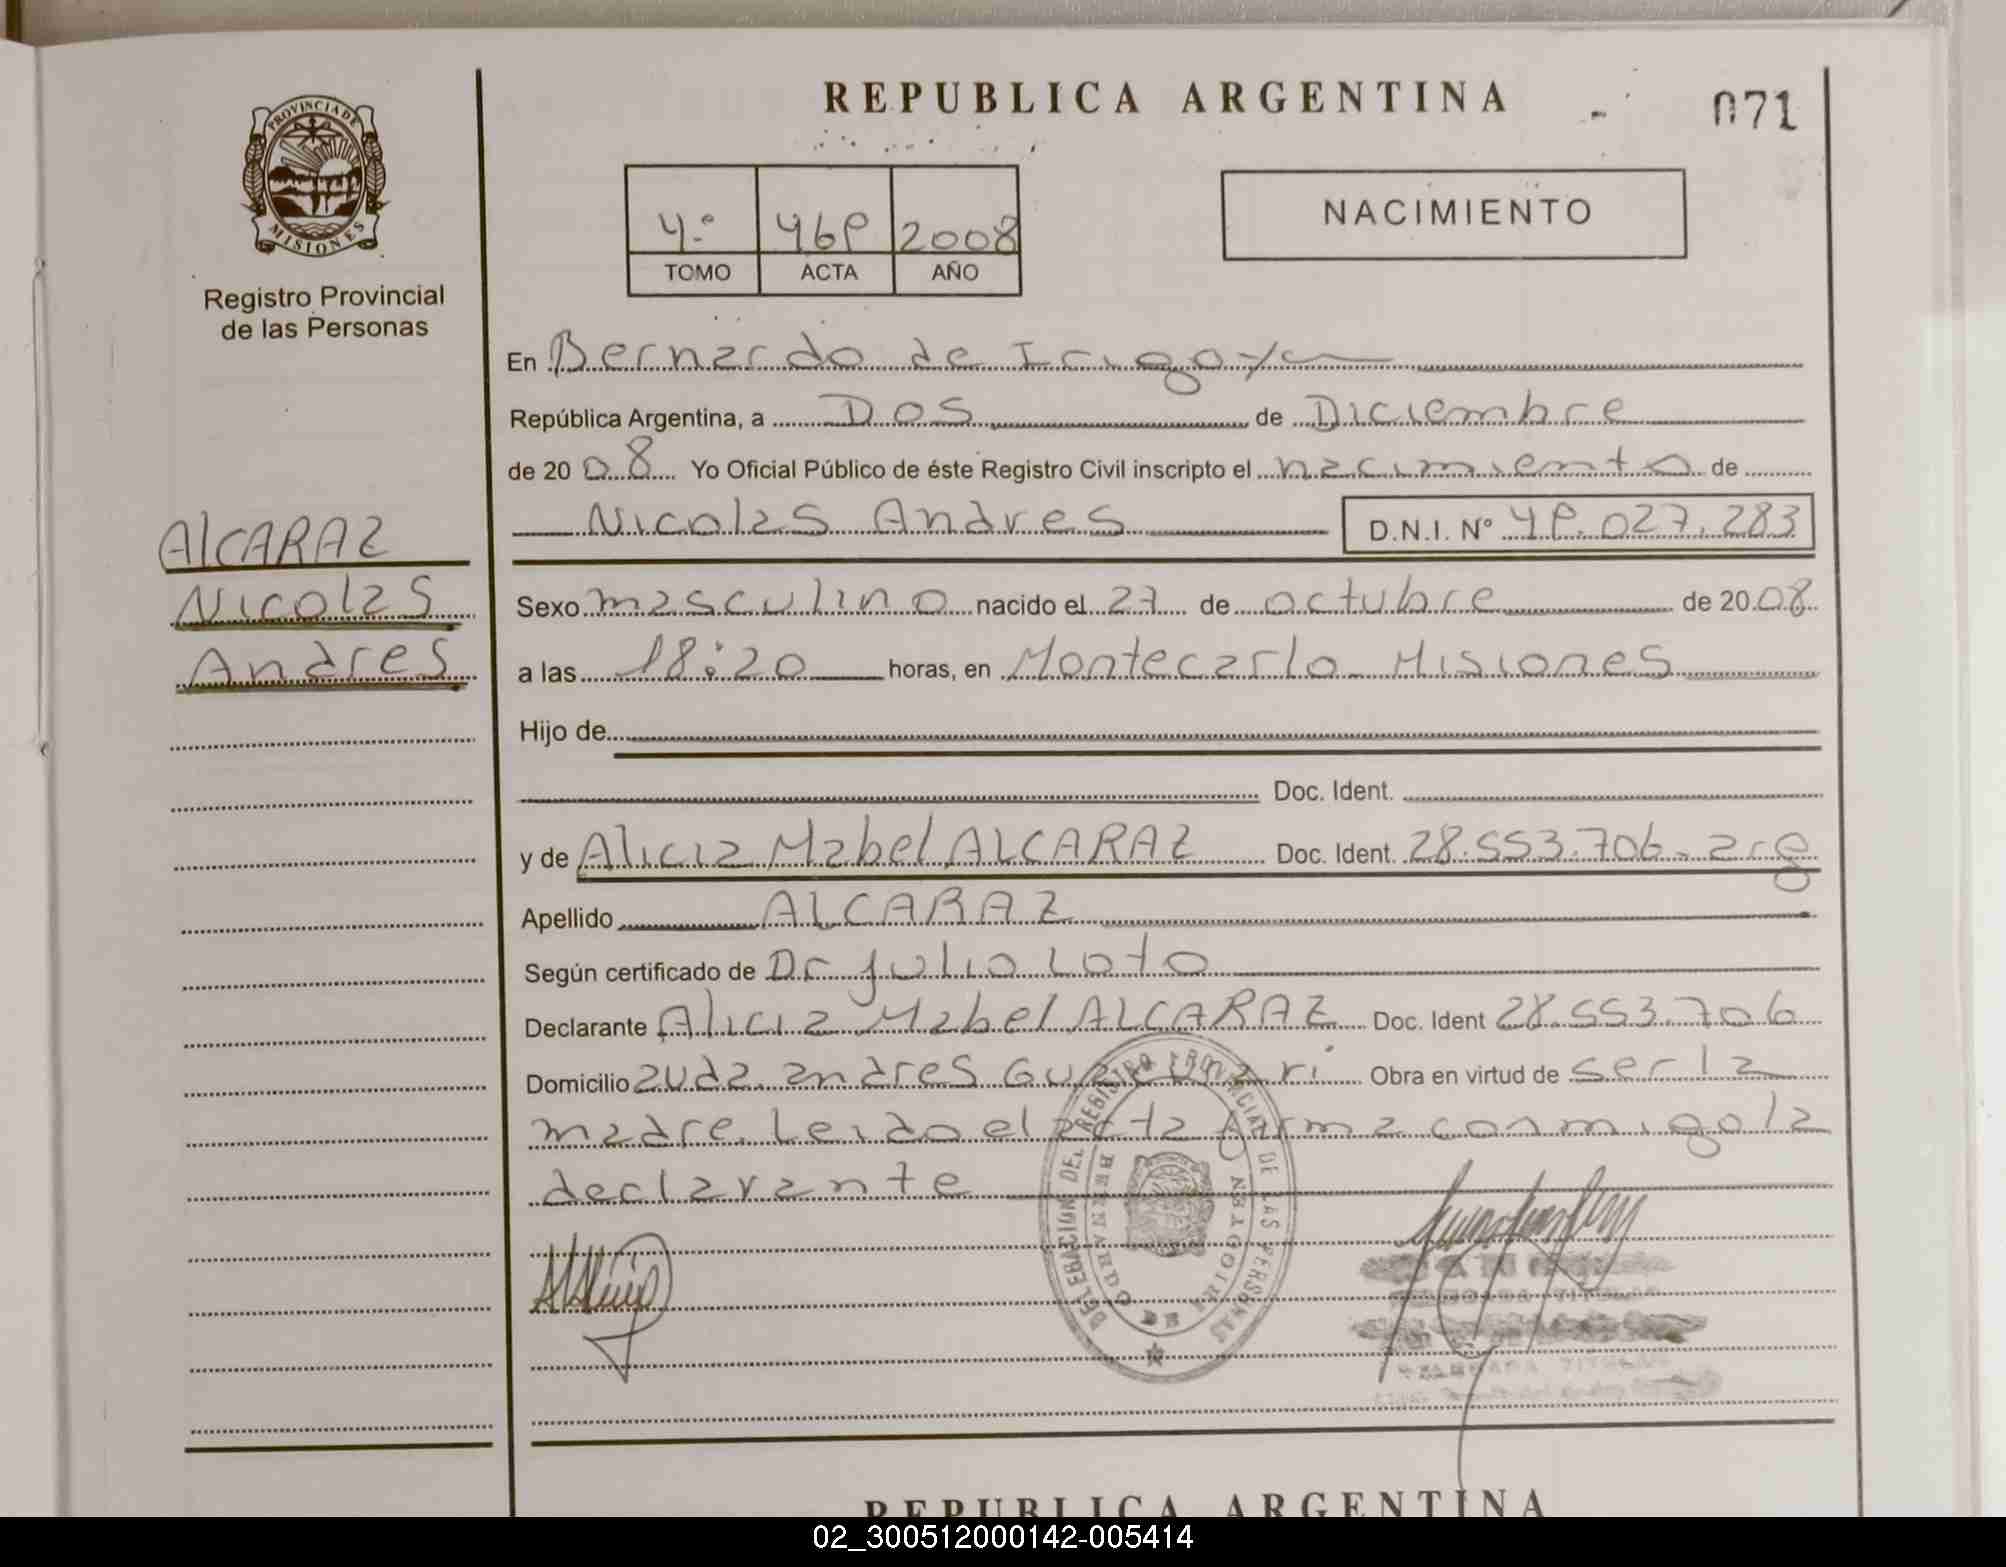 REPUBLICA ARGENTINA
071
PROVINCIA DE
MISIONES
Registro Provincial
de las Personas
4º 469 2008
TOMO ACTA AÑO
NACIMIENTO
En Bernardo de Irigoyen
República Argentina, a Dos de Diciembre
de 20 08 Yo Oficial Público de éste Registro Civil inscripto el nacimiento de
Nicolas Andres D.N.I. Nº 49.027.283
ALCARAZ
Nicolas
Andres
Sexo masculino nacido el 27 de octubre de 20 08
a las 18:20 horas, en Montecarlo Misiones
Hijo de
Doc. Ident.
y de Alicia Mabel ALCARAZ Doc. Ident. 28.553.706. arg
Apellido ALCARAZ
Según certificado de Dr Julio Loto
Declarante Alicia Mabel ALCARAZ Doc. Ident 28.553.706
Domicilio avda. andres Guacurari Obra en virtud de ser la
madre. Leido el acta firma conmigo la
declarante
DELEGACION DEL REGISTRO PROVINCIAL DE LAS PERSONAS
BERNARDO DE IRIGOYEN
REPUBLICA ARGENTINA
02_300512000142-005414